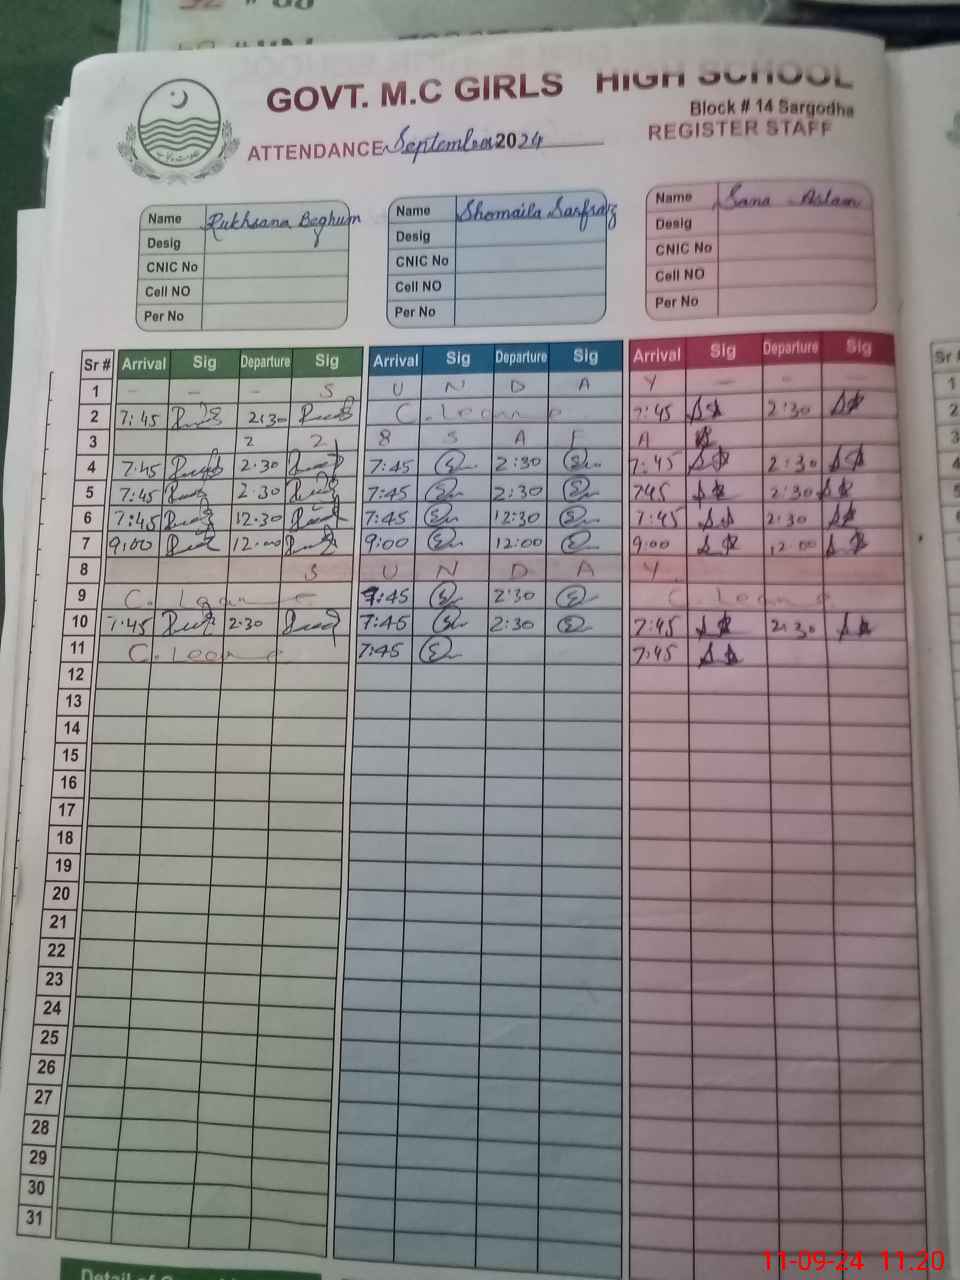 GOVT. M.C GIRLS HIGH SCHOOL
Block # 14 Sargodha
ATTENDANCE September 2024 REGISTER STAFF
Name Rukhsana Beghum Name Shomaila Sarfraz Name Sana Aslam
Desig Desig Desig
CNIC No CNIC No CNIC No
Cell NO Cell NO Cell NO
Per No Per No Per No
Sr # Arrival Sig Departure Sig Arrival Sig Departure Sig Arrival Sig Departure Sig
1 - - - S U N D A Y - - -
2 7:45 2:30 C. leave 7:45 2:30
3 A
4 7:45 2.30 7:45 2:30 7:45 2:30
5 7:45 2.30 7:45 2:30 7:45 2:30
6 7:45 12.30 7:45 12:30 7:45 2:30
7 9:00 12.00 9:00 12:00 9:00 12:00
8 S U N D A Y
9 C. leave 7:45 2:30 C. leave
10 7:45 2.30 7:45 2:30 7:45 2:30
11 C. leave 7:45 7:45
12
13
14
15
16
17
18
19
20
21
22
23
24
25
26
27
28
29
30
31
11-09-24 11:20